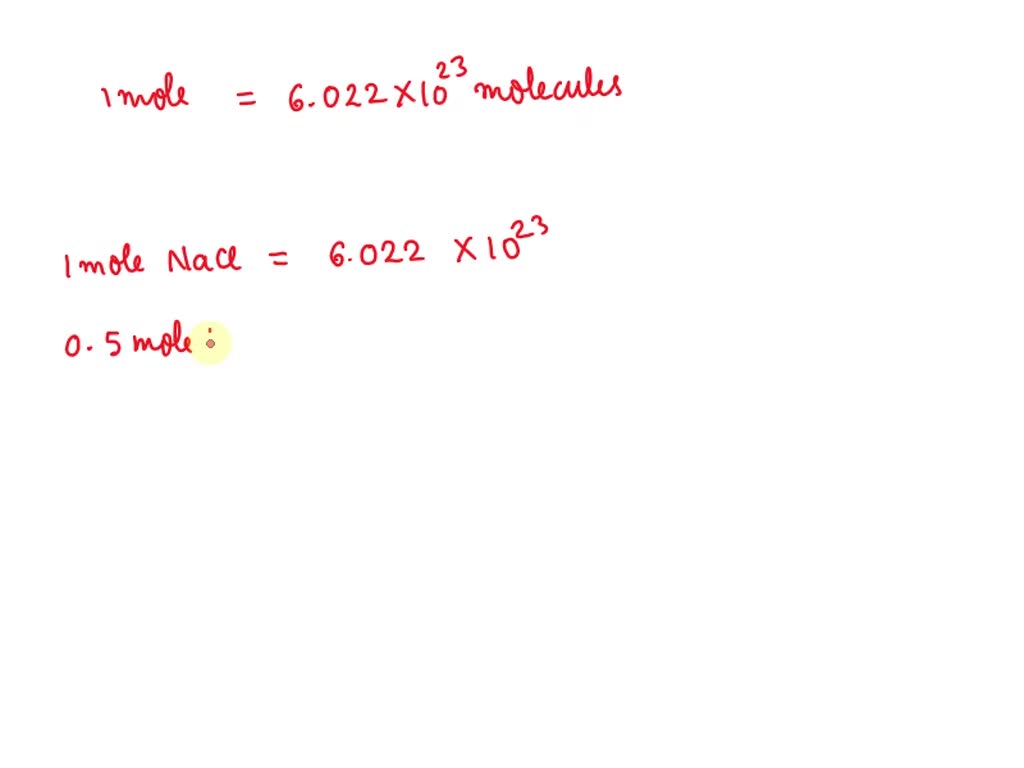 1 mole = 6.022 × 10²³ molecules
1 mole NaCl = 6.022 × 10²³
0.5 mole